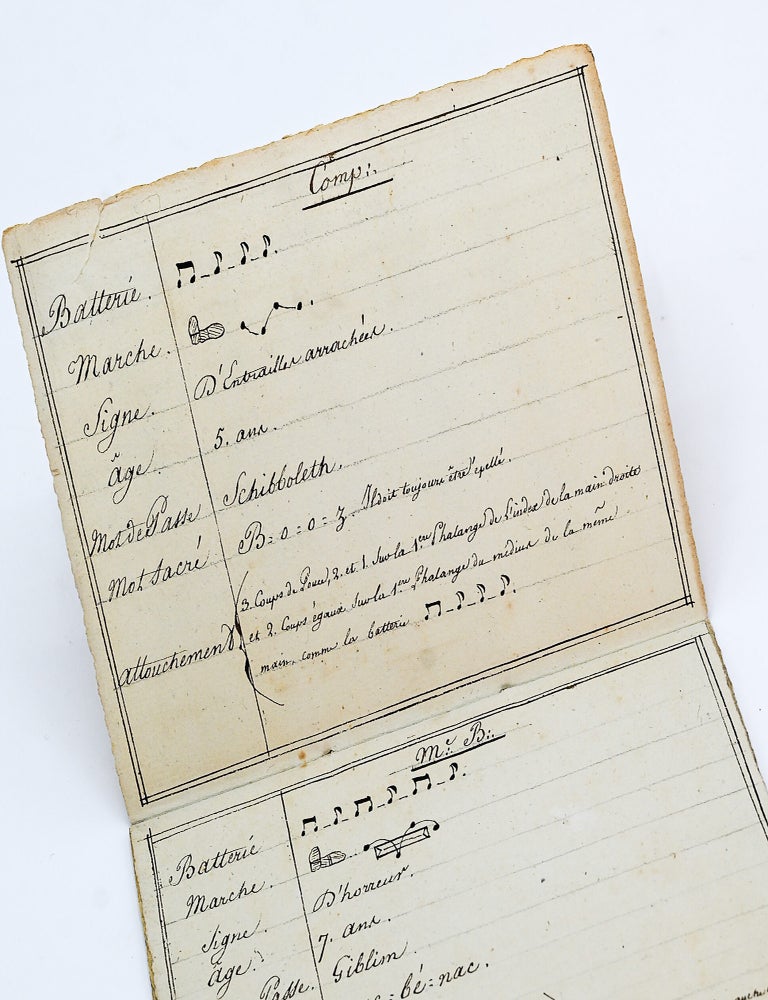 Comp∴
Batterie.
Marche.
Signe. D'Entrailles arrachées.
âge. 5. ans.
Mot de Passe Schibboleth.
Mot Sacré B=o=o=z. Il doit toujours être épellé.
attouchement. 3. Coups de Pouce, 2. et 1. Sur la 1.ere Phalange de L'index de la main droite
et 2. Coups égaux Sur la 1.ere Phalange du médius de la même
main, comme la batterie
M.e B∴
Batterie
Marche.
Signe. D'horreur.
âge. 7. ans.
Passe. Giblim.
=bé=nac.